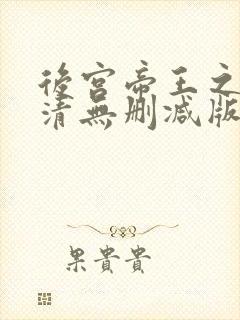 後宮帝王之
清無删减版
果貴貴